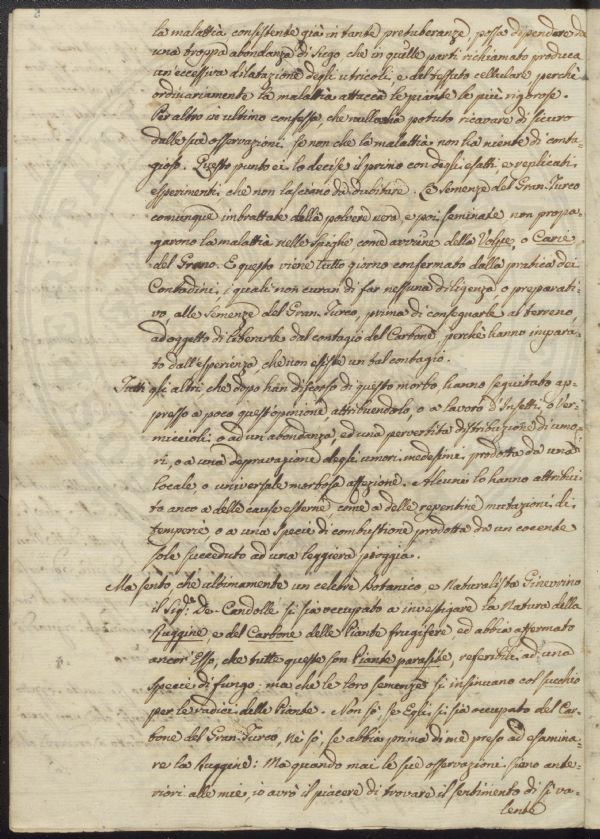 la malattia consistente già in tante pretuberanze, possa dipendere da
una troppa abondanza di Sugo che in quelle parti richiamato produca
un'eccessiva dilatazione degli utricoli, e del tessuto cellulare, perchè
ordinariamente la malattia attacca le piante le più rigorose.
Per altro in ultimo confessa, che nulla potuto ricavare di sicuro
dalle sue osservazioni, se non che la malattia non ha niente di conta-
gioso. Questo punto ei lo decise il primo con degli esatti, e replicati
esperimenti che non lasciano da dubitare. Le Semenze del Gran-Turco
comunque imbrattate dalla polvere nera, e poi seminate non propa-
garono la malattia nelle Spighe come avviene della Volpe, o Carie,
del Grano. E questo viene tutto giorno confermato dalla pratica dei
Contadini, i quali non curan di far nessuna diligenza, o preparati-
vo, alle Semenze del Gran-Turco, prima di consegnarle al terreno,
ad oggetto di liberarle dal contagio del Carbone perchè hanno impara-
to dall'esperienza che non esiste un tal contagio.
Tutti gli altri che dopo han discorso di questo morbo hanno seguitato ap-
presso a poco quest'opinione attribuendolo, o a lavoro d'Insetti, o Ver-
miccioli, o ad un abondanza, ed una pervertita distribuzione di umo-
ri, o a una depravazione degli umori medesimi prodotta da una
locale, o universale morbosa affezione. Alcuni lo hanno attribui-
to anco a delle cause esterne, come a delle repentine mutazioni di
temperie, o a una Specie di combustione prodotta da un cocente
sole succeduto ad una leggiera pioggia.
Ma sento che ultimamente un celebre Botanico, e Naturalista Ginevrino
il Sig.r De-Candolle si sia occupato a investigare la Natura della
Ruggine, e del Carbone delle Piante frugifere, ed abbia affermato
ancor' Esso, che tutte queste son Piante parasite, referibili ad una
Specie di fungo, ma che le loro semenze s'insinuano col succhio
per le radici delle Piante. Non sò, se Egli si sia occupato del Car-
bone del Gran-Turco, nè sò, se abbia prima di me preso ad esamina-
re la Ruggine: Ma quando mai le sue osservazioni sieno ante-
riori alle mie, io avrò il piacere di trovare il sentimento di sì va-
lente